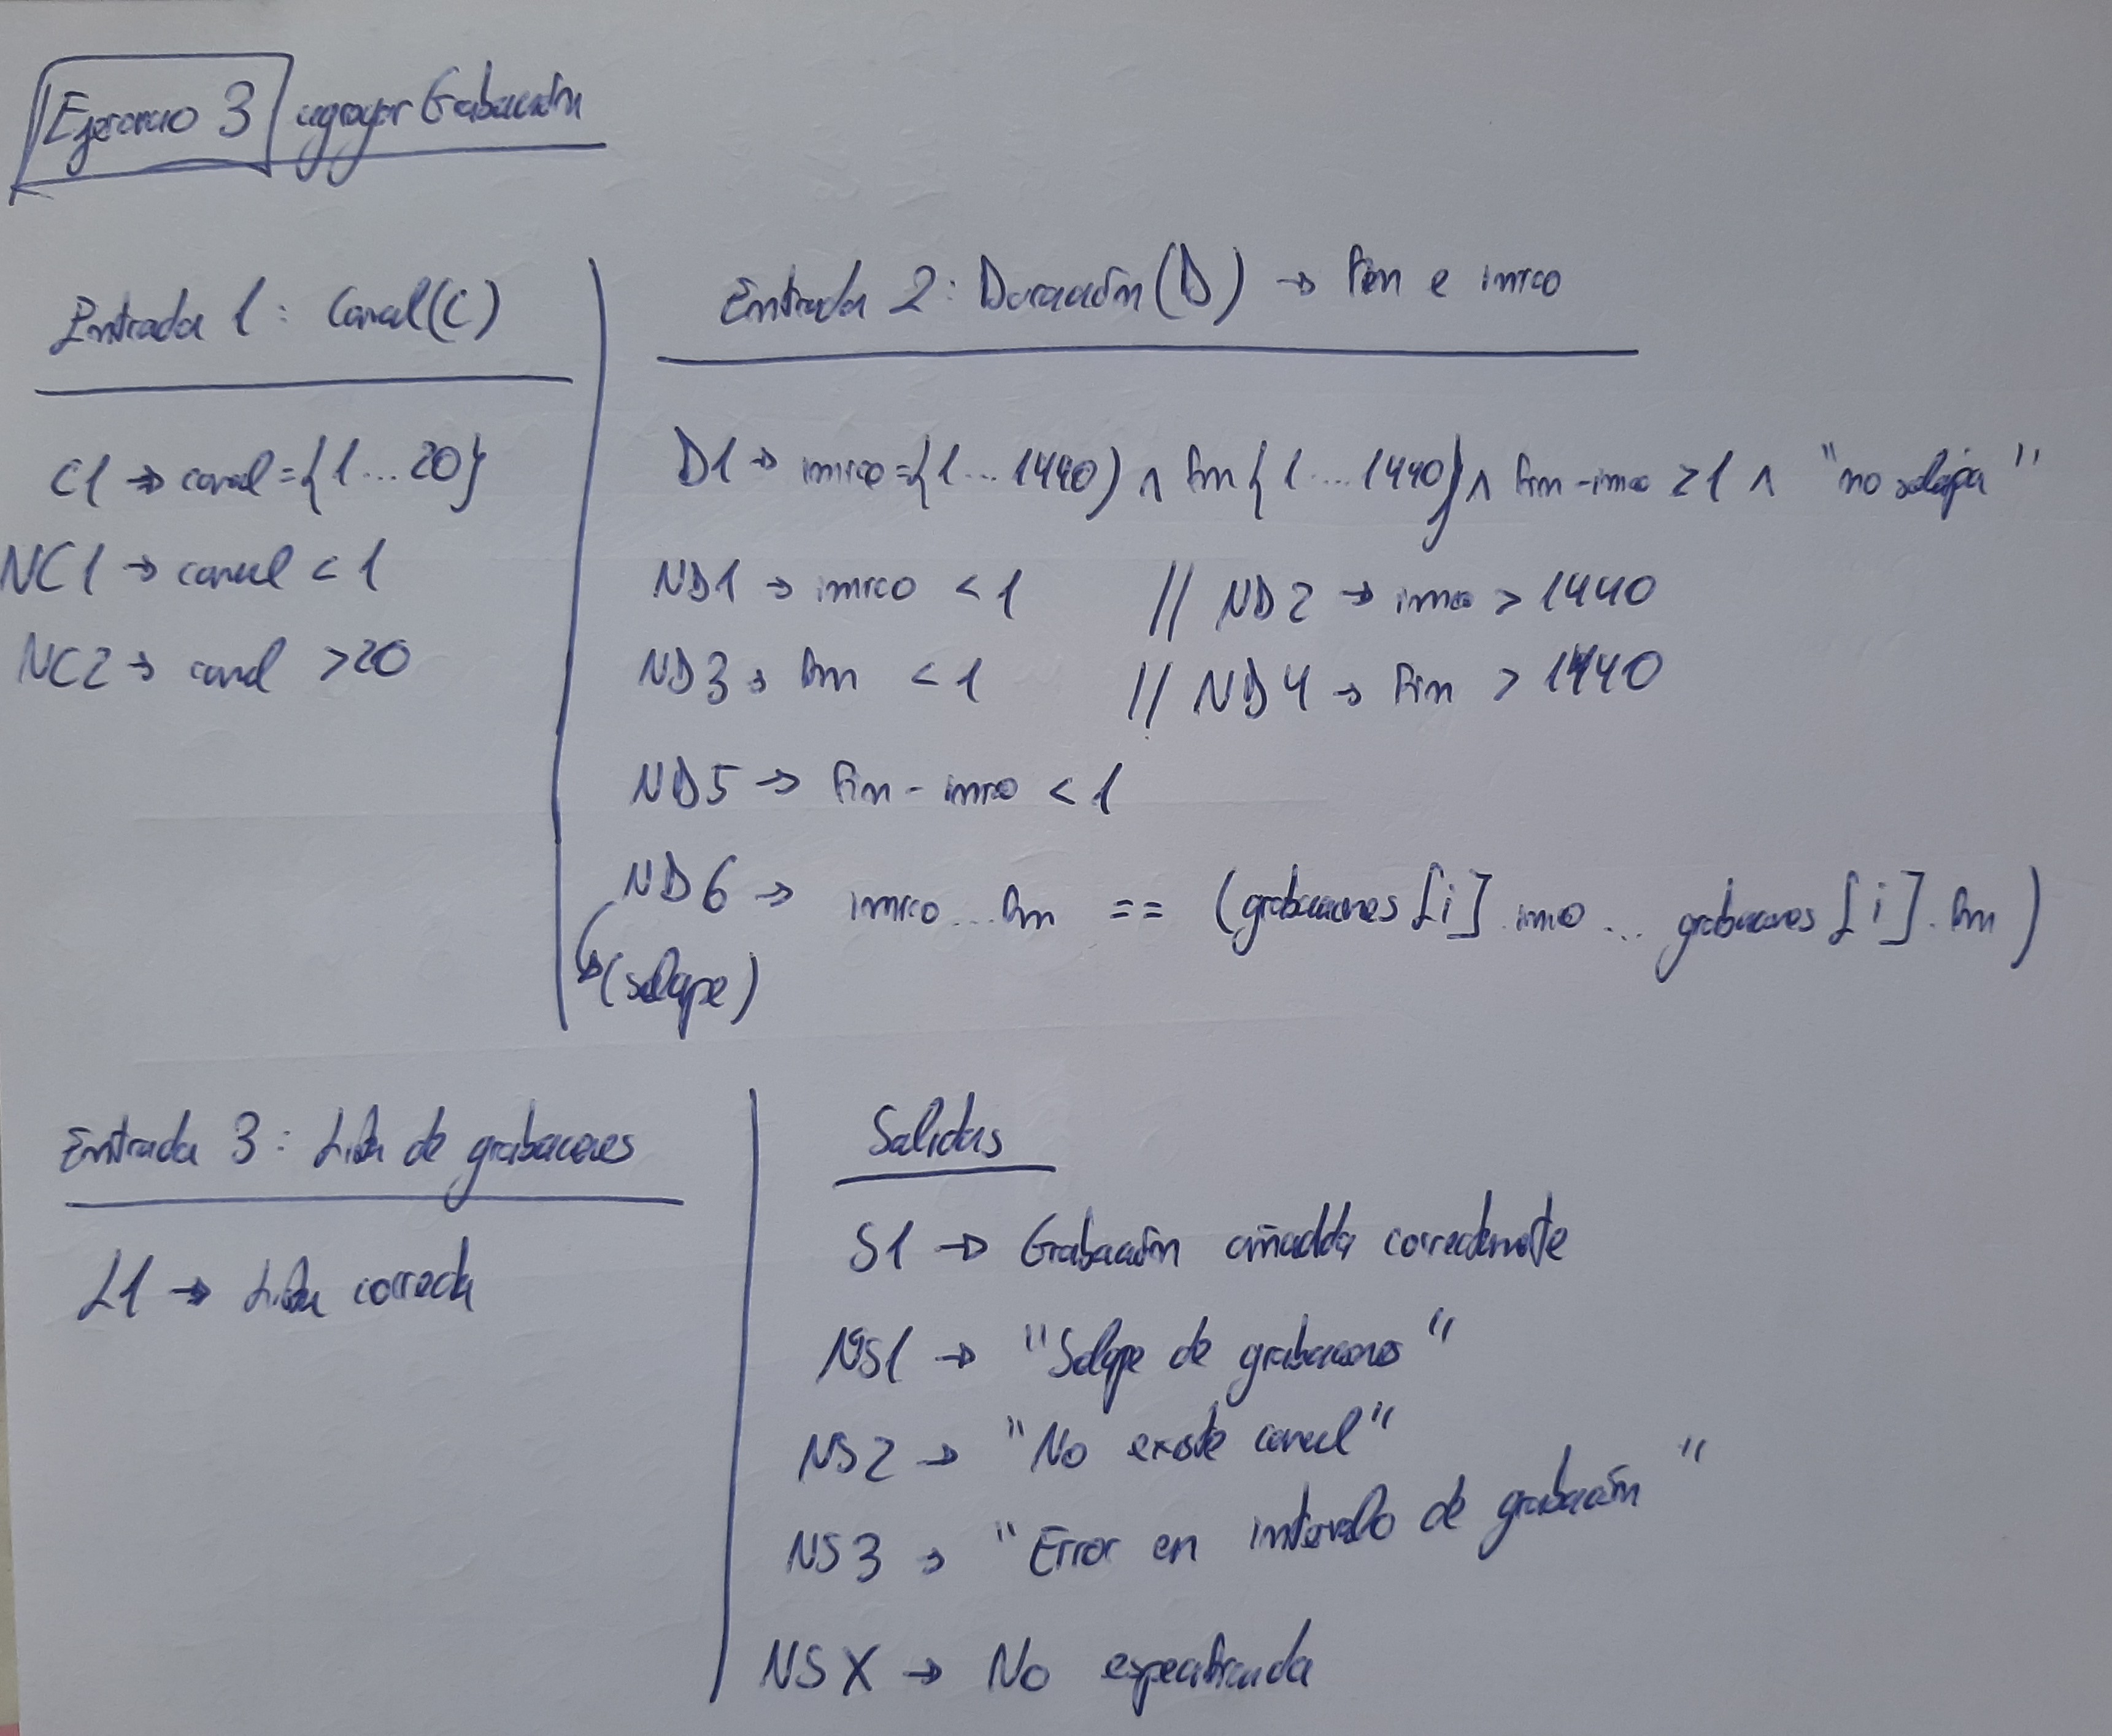 Ejercicio 3 agregar Grabación
Entrada 1: Canal(C)
C1 → canal={1...20}
NC1 → canal < 1
NC2 → canal >20
Entrada 2: Duración(D) → fin e inicio
D1 → inicio={1...1440) ∧ fin{1...1440} ∧ fin-inicio ≥1 ∧ "no solapa"
ND1 → inicio < 1 // ND2 → inicio > 1440
ND3 → fin < 1 // ND4 → fin > 1440
ND5 → fin - inicio < 1
ND6 → inicio...fin == (grabaciones[i].inicio ... grabaciones[i].fin)
(solape)
Entrada 3: Lista de grabaciones
L1 → Lista correcta
Salidas
S1 → Grabación añadida correctamente
NS1 → "Solape de grabaciones"
NS2 → "No existe canal"
NS3 → "Error en intervalo de grabación"
NSX → No especificada